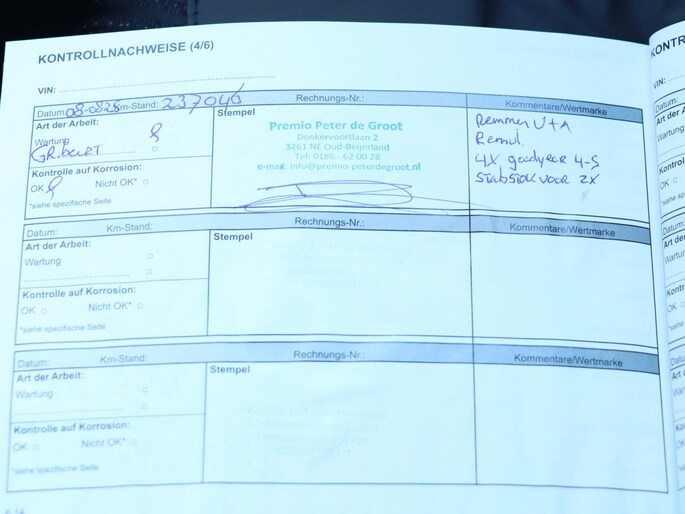 KONTROLLNACHWEISE (4/6)
VIN:
Datum: 08-0825 Km-Stand: 237046 Rechnungs-Nr.: Kommentare/Wertmarke
Art der Arbeit:
Wartung
GR. beurT
Kontrolle auf Korrosion:
OK Nicht OK*
*siehe spezifische Seite
Stempel
Premio Peter de Groot
Donkervoortlaan 2
3261 NE Oud-Beijerland
Tel: 0186 - 62 00 28
e-mail: info@premio-peterdegroot.nl
Remmen V+A
Remvl.
4X goodyear 4-S
Stabstok voor 2X
Datum: Km-Stand: Rechnungs-Nr.: Kommentare/Wertmarke
Art der Arbeit:
Wartung
Kontrolle auf Korrosion:
OK Nicht OK*
*siehe spezifische Seite
Stempel
Datum: Km-Stand: Rechnungs-Nr.: Kommentare/Wertmarke
Art der Arbeit:
Wartung
Kontrolle auf Korrosion:
OK Nicht OK*
*siehe spezifische Seite
Stempel
6.14
KONTR
VIN:
Datum:
Art der A
Wartung